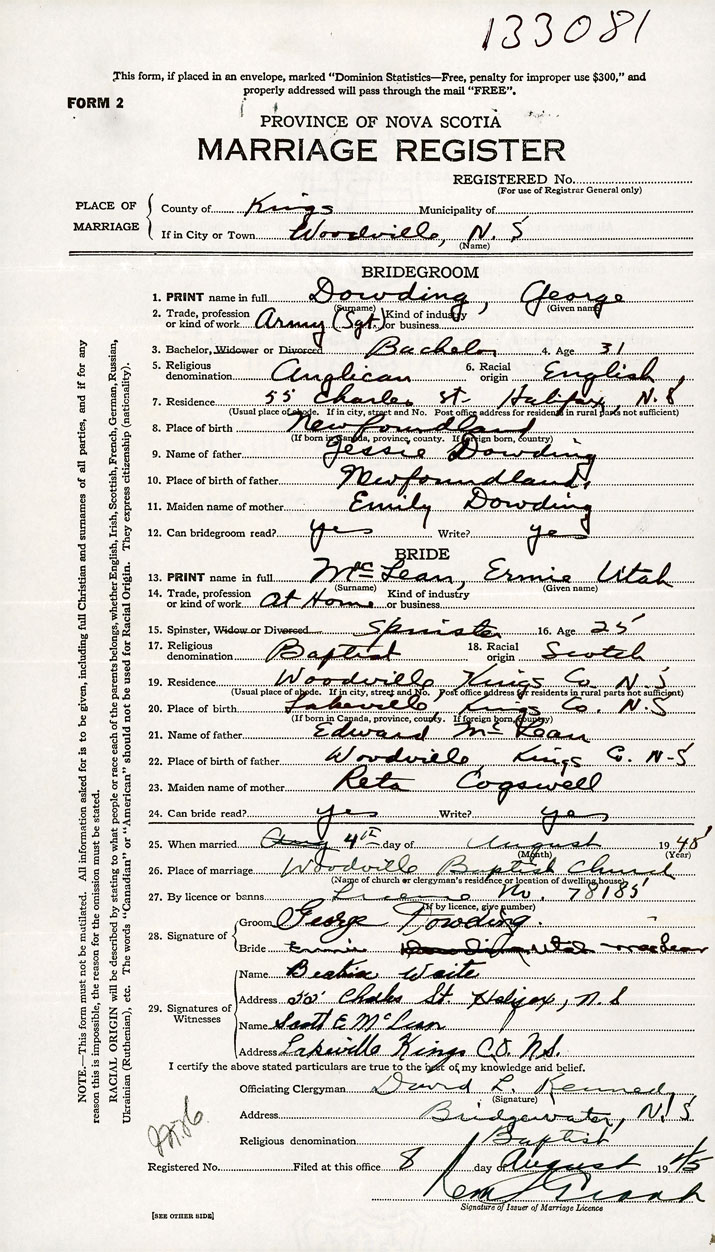 133081
This form, if placed in an envelope, marked "Dominion Statistics—Free, penalty for improper use $300," and
properly addressed will pass through the mail "FREE".
FORM 2
PROVINCE OF NOVA SCOTIA
MARRIAGE REGISTER
REGISTERED No.
(For use of Registrar General only)
PLACE OF MARRIAGE
County of Kings Municipality of
If in City or Town Woodville, N.S
(Name)
BRIDEGROOM
1. PRINT name in full Dowding, George
(Surname) (Given name)
2. Trade, profession or kind of work Army (Sgt.) Kind of industry or business
3. Bachelor, Widower or Divorced Bachelor 4. Age 31
5. Religious denomination Anglican 6. Racial origin English
7. Residence 55 Charles St. Halifax, N.S
(Usual place of abode. If in city, street and No. Post office address for residents in rural parts not sufficient)
8. Place of birth Newfoundland
(If born in Canada, province, county. If foreign born, country)
9. Name of father Jessie Dowding
10. Place of birth of father Newfoundland.
11. Maiden name of mother Emily Dowding
12. Can bridegroom read? yes Write? yes
BRIDE
13. PRINT name in full McLean, Ermie Utah
(Surname) (Given name)
14. Trade, profession or kind of work At Home Kind of industry or business
15. Spinster, Widow or Divorced Spinster 16. Age 25
17. Religious denomination Baptist 18. Racial origin Scotch
19. Residence Woodville Kings Co. N.S
(Usual place of abode. If in city, street and No. Post office address for residents in rural parts not sufficient)
20. Place of birth Lakeville, Kings Co. N.S
(If born in Canada, province, county. If foreign born, country)
21. Name of father Edward McLean
22. Place of birth of father Woodville, Kings Co. N-S
23. Maiden name of mother Reta Cogswell
24. Can bride read? yes Write? yes
25. When married Aug 4th day of August 1945
(Month) (Year)
26. Place of marriage Woodville Baptist Church
(Name of church or clergyman's residence or location of dwelling house)
27. By licence or banns License No. 78185
(If by licence, give number)
28. Signature of
Groom George Dowding.
Bride Ermie Dowding Utah MacLean
29. Signatures of Witnesses
Name Waite
Address 55 Charles St. Halifax, N.S
Name Scott E McLean
Address Lakeville Kings CO. N.S.
I certify the above stated particulars are true to the best of my knowledge and belief.
Officiating Clergyman David L. Kennedy
(Signature)
Address Bridgewater, N.S
Religious denomination Baptist
Registered No. Filed at this office 8 day of August 1945
Signature of Issuer of Marriage Licence
[SEE OTHER SIDE]
NOTE.—This form must not be mutilated. All information asked for is to be given, including full Christian and surnames of all parties, and if for any
reason this is impossible, the reason for the omission must be stated.
RACIAL ORIGIN will be described by stating to what people or race each of the parents belongs, whether English, Irish, Scottish, French, German, Russian,
Ukrainian (Ruthenian), etc. The words "Canadian" or "American" should not be used for Racial Origin. They express citizenship (nationality).